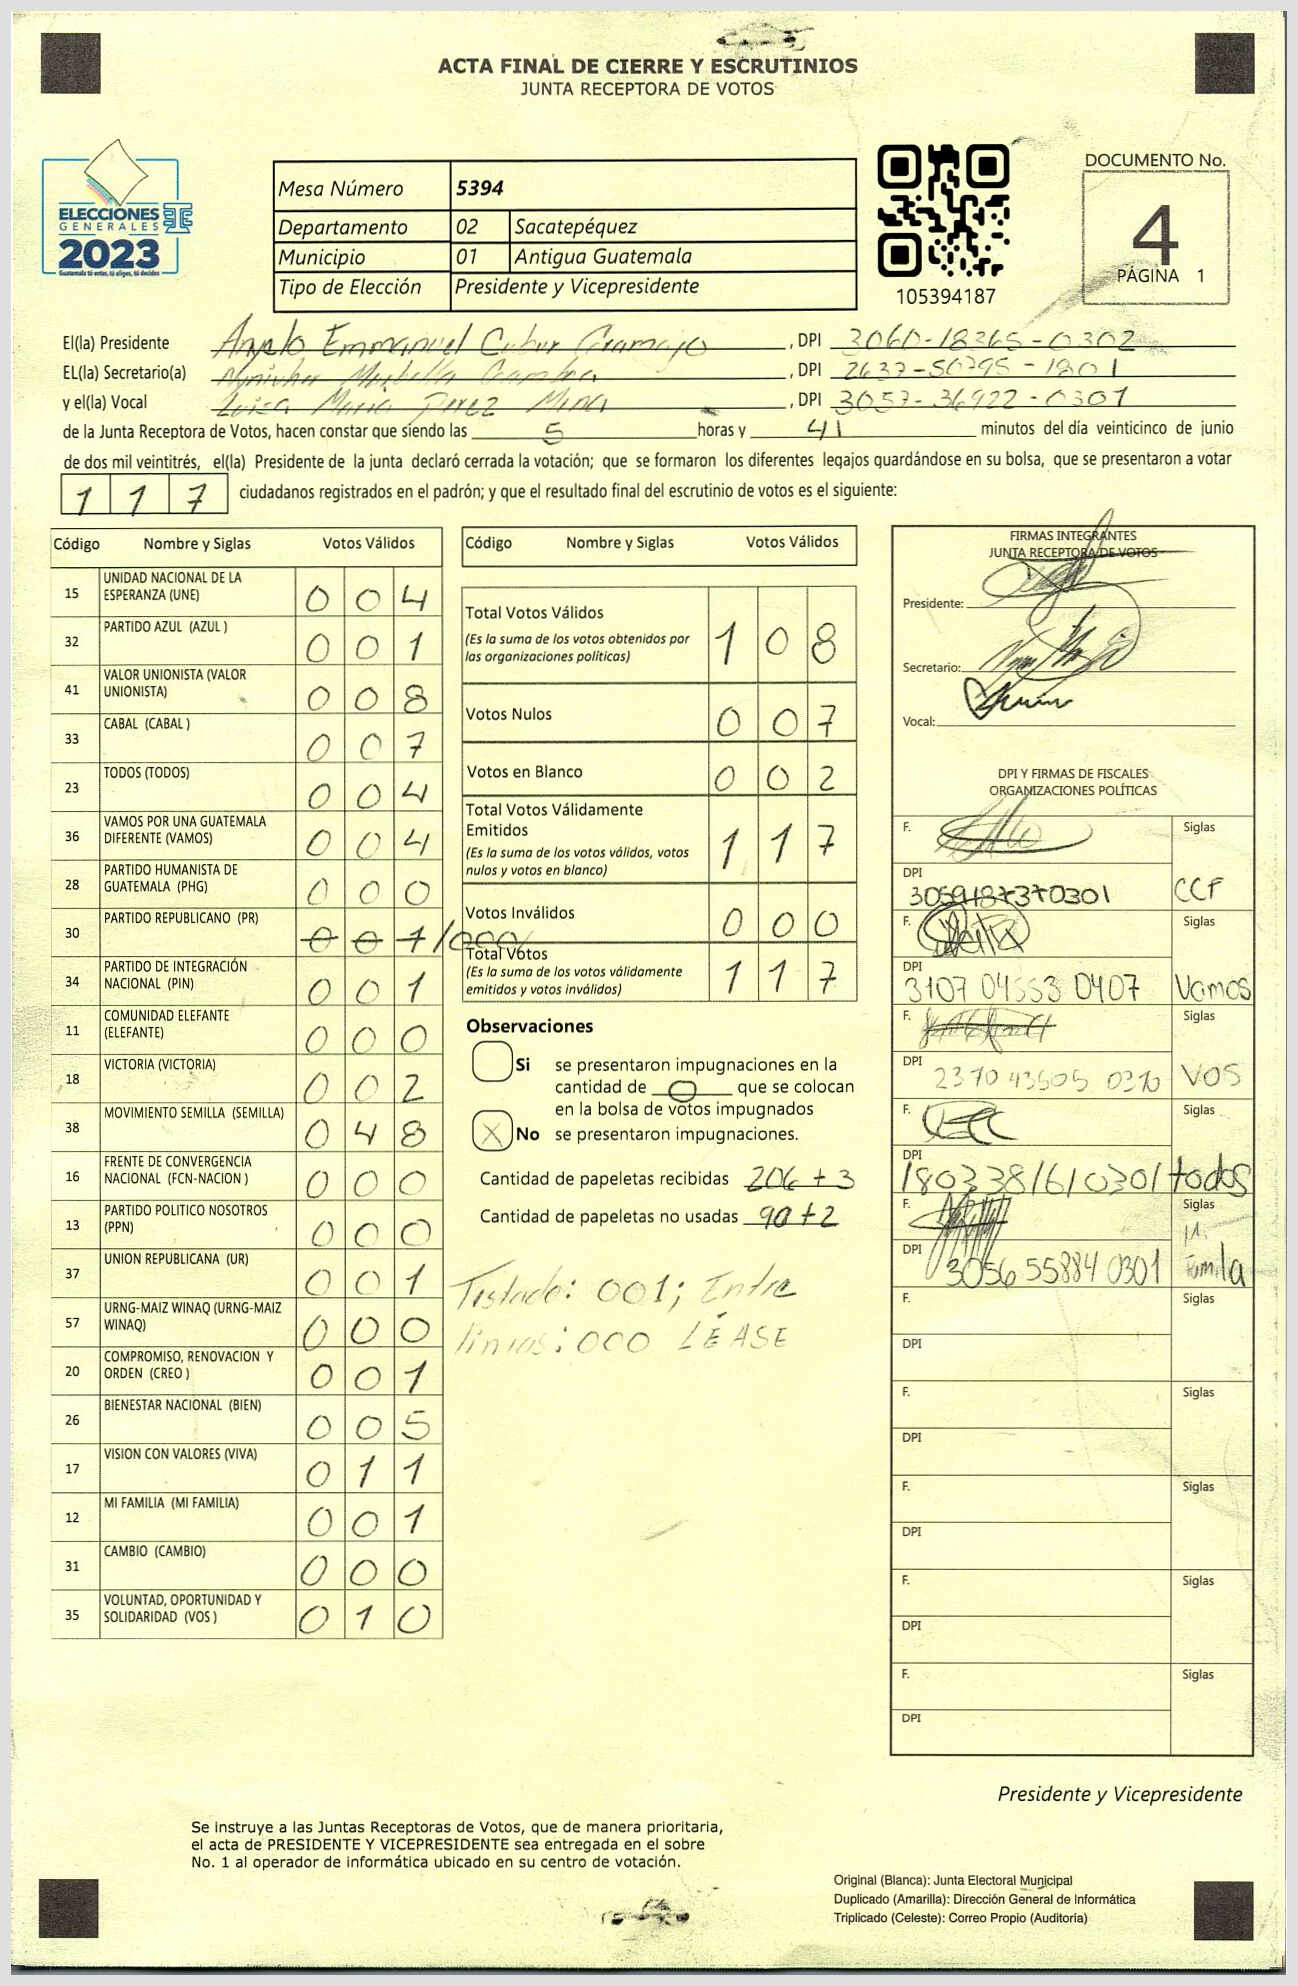 ACTA FINAL DE CIERRE Y ESCRUTINIOS
JUNTA RECEPTORA DE VOTOS
ELECCIONES
GENERALES
2023
Guatemala tú votas, tú eliges, tú decides
Mesa Número 5394
Departamento 02 Sacatepéquez
Municipio 01 Antigua Guatemala
Tipo de Elección Presidente y Vicepresidente
105394187
DOCUMENTO No.
4
PÁGINA 1
El(la) Presidente Emmanuel , DPI 3060-18365-0302
EL(la) Secretario(a) , DPI 2637-50795-1801
y el(la) Vocal Luisa Maria Perez , DPI 3057-36922-0301
de la Junta Receptora de Votos, hacen constar que siendo las 5 horas y 41 minutos del día veinticinco de junio
de dos mil veintitrés, el(la) Presidente de la junta declaró cerrada la votación; que se formaron los diferentes legajos guardándose en su bolsa, que se presentaron a votar
117 ciudadanos registrados en el padrón; y que el resultado final del escrutinio de votos es el siguiente:
Código Nombre y Siglas Votos Válidos
15 UNIDAD NACIONAL DE LA ESPERANZA (UNE) 0 0 4
32 PARTIDO AZUL (AZUL ) 0 0 1
41 VALOR UNIONISTA (VALOR UNIONISTA) 0 0 8
33 CABAL (CABAL ) 0 0 7
23 TODOS (TODOS) 0 0 4
36 VAMOS POR UNA GUATEMALA DIFERENTE (VAMOS) 0 0 4
28 PARTIDO HUMANISTA DE GUATEMALA (PHG) 0 0 0
30 PARTIDO REPUBLICANO (PR) 0 0 1/000/
34 PARTIDO DE INTEGRACIÓN NACIONAL (PIN) 0 0 1
11 COMUNIDAD ELEFANTE (ELEFANTE) 0 0 0
18 VICTORIA (VICTORIA) 0 0 2
38 MOVIMIENTO SEMILLA (SEMILLA) 0 4 8
16 FRENTE DE CONVERGENCIA NACIONAL (FCN-NACION ) 0 0 0
13 PARTIDO POLITICO NOSOTROS (PPN) 0 0 0
37 UNION REPUBLICANA (UR) 0 0 1
57 URNG-MAIZ WINAQ (URNG-MAIZ WINAQ) 0 0 0
20 COMPROMISO, RENOVACION Y ORDEN (CREO ) 0 0 1
26 BIENESTAR NACIONAL (BIEN) 0 0 5
17 VISION CON VALORES (VIVA) 0 1 1
12 MI FAMILIA (MI FAMILIA) 0 0 1
31 CAMBIO (CAMBIO) 0 0 0
35 VOLUNTAD, OPORTUNIDAD Y SOLIDARIDAD (VOS ) 0 1 0
Código Nombre y Siglas Votos Válidos
Total Votos Válidos 1 0 8
(Es la suma de los votos obtenidos por
las organizaciones políticas)
Votos Nulos 0 0 7
Votos en Blanco 0 0 2
Total Votos Válidamente
Emitidos 1 1 7
(Es la suma de los votos válidos, votos
nulos y votos en blanco)
Votos Inválidos 0 0 0
Total Votos 1 1 7
(Es la suma de los votos válidamente
emitidos y votos inválidos)
Observaciones
Si se presentaron impugnaciones en la
cantidad de 0 que se colocan
en la bolsa de votos impugnados
X No se presentaron impugnaciones.
Cantidad de papeletas recibidas 206 + 3
Cantidad de papeletas no usadas 90 + 2
Testado: 001; Entre
lineas: 000 LEASE
FIRMAS INTEGRANTES
JUNTA RECEPTORA DE VOTOS
Presidente:
Secretario:
Vocal:
DPI Y FIRMAS DE FISCALES
ORGANIZACIONES POLÍTICAS
F. Siglas
DPI 3059187370301 CCF
F. Siglas
DPI 3107 04553 0407 Vamos
F. Siglas
DPI 2370 43505 0310 VOS
F. Siglas
DPI 1803381610301 todos
F. Siglas
DPI 3056 55884 0301
F. Siglas
DPI
F. Siglas
DPI
F. Siglas
DPI
F. Siglas
DPI
F. Siglas
DPI
Presidente y Vicepresidente
Se instruye a las Juntas Receptoras de Votos, que de manera prioritaria,
el acta de PRESIDENTE Y VICEPRESIDENTE sea entregada en el sobre
No. 1 al operador de informática ubicado en su centro de votación.
Original (Blanca): Junta Electoral Municipal
Duplicado (Amarilla): Dirección General de Informática
Triplicado (Celeste): Correo Propio (Auditoría)